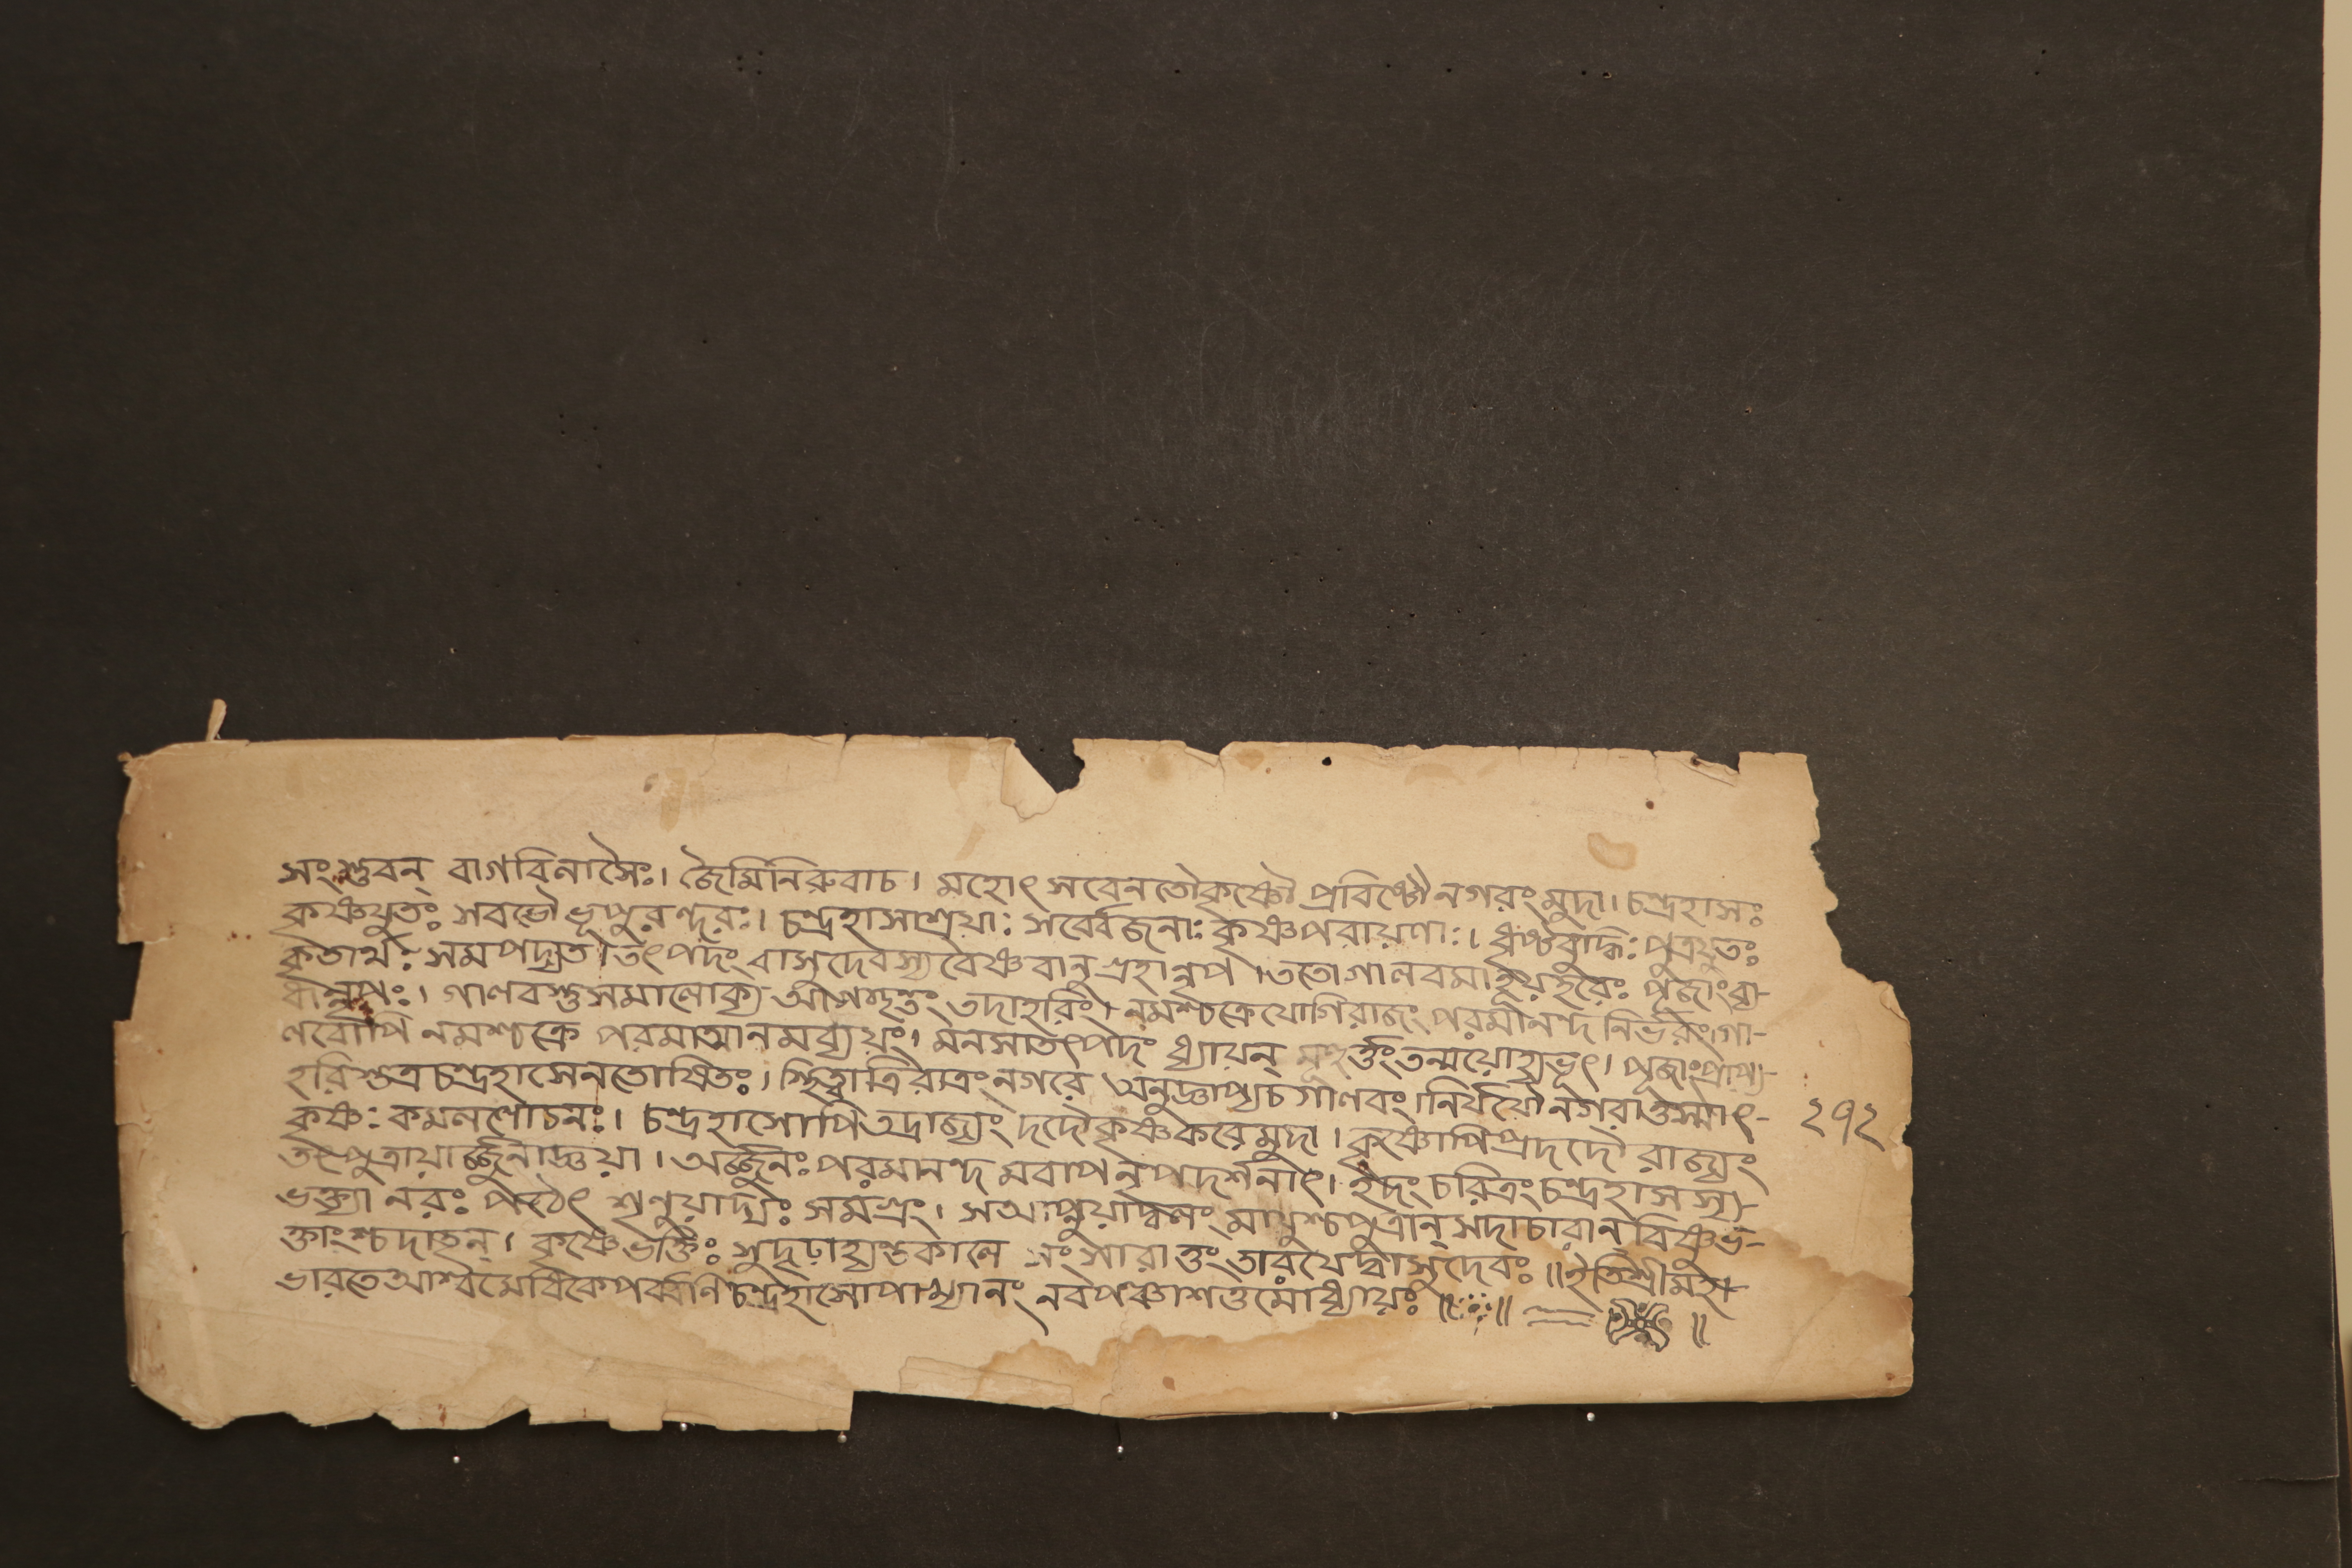 সংস্তুবন্ বাগবিলাসৈঃ। জৈমিনিরুবাচ। মহোৎসবেনতৌকৃষ্ণৌ প্রবিষ্টৌনগরংমুদা। চন্দ্রহাসঃ
কৃষ্ণযুতঃ সবভৌ ভূপুরন্দরঃ। চন্দ্রহাসাশ্রয়াঃ সর্ব্বেজনাঃ কৃষ্ণপরায়ণাঃ। ধৃষ্টবুদ্ধিঃ পুত্রযুতঃ
কৃতার্থঃ সমপদ্যত। তৎপদং বাসুদেবস্য বৈষ্ণবানুগ্রহান্নৃপ। ততোগালবমাহূয়হরেঃ পূজাংব্য-
ধান্নৃপঃ। গালবস্তুসমালোক্য আগতংতং তদাহরিং। নমশ্চক্রেযোগিরাজং পরমানন্দ নির্ভরং।গা-
লবোপি নমশ্চক্রে পরমাত্মানমব্যয়ং। মনসাতৎপদং ধ্যায়ন্ মুহূর্ত্তংতন্ময়োহ্যভূৎ। পূজাংপ্রাপ্য-
হরিস্তত্রচন্দ্রহাসেনতোষিতঃ। স্থিত্বাত্রিরাত্রংনগরে অনুজ্ঞাপ্যচগালবং।নির্যযৌনগরাত্তস্মাৎ- ২৭২
কৃষ্ণঃ কমললোচনঃ। চন্দ্রহাসোপিতদ্রাজ্যং দদৌকৃষ্ণকরেমুদা। কৃষ্ণোপিপ্রদদৌ রাজ্যং
তৎপুত্রায়ার্জ্জুনাজ্ঞয়া। অর্জ্জুনঃ পরমানন্দ মবাপনৃপদর্শনাৎ। ইদংচরিত্রংচন্দ্রহাসস্য-
ভক্ত্যা নরঃ পঠেৎ শৃণুয়াদ্যঃ সমগ্রং। সআপ্নুয়াদ্ধনং মায়ুশ্চপুত্রান্ সদাচারান্ বিষ্ণুভ-
ক্তাংশ্চদাতৃন্। কৃষ্ণেভক্তিঃ সুদৃঢ়াহ্যন্তকালে সংসারাত্তংতারয়েদ্বাসুদেবঃ॥ইতিশ্রীমহা-
ভারতেআশ্বমেধিকেপর্ব্বণিচন্দ্রহাসোপাখ্যানং নবপঞ্চাশত্তমোধ্যায়ঃ॥ ॥ ॥